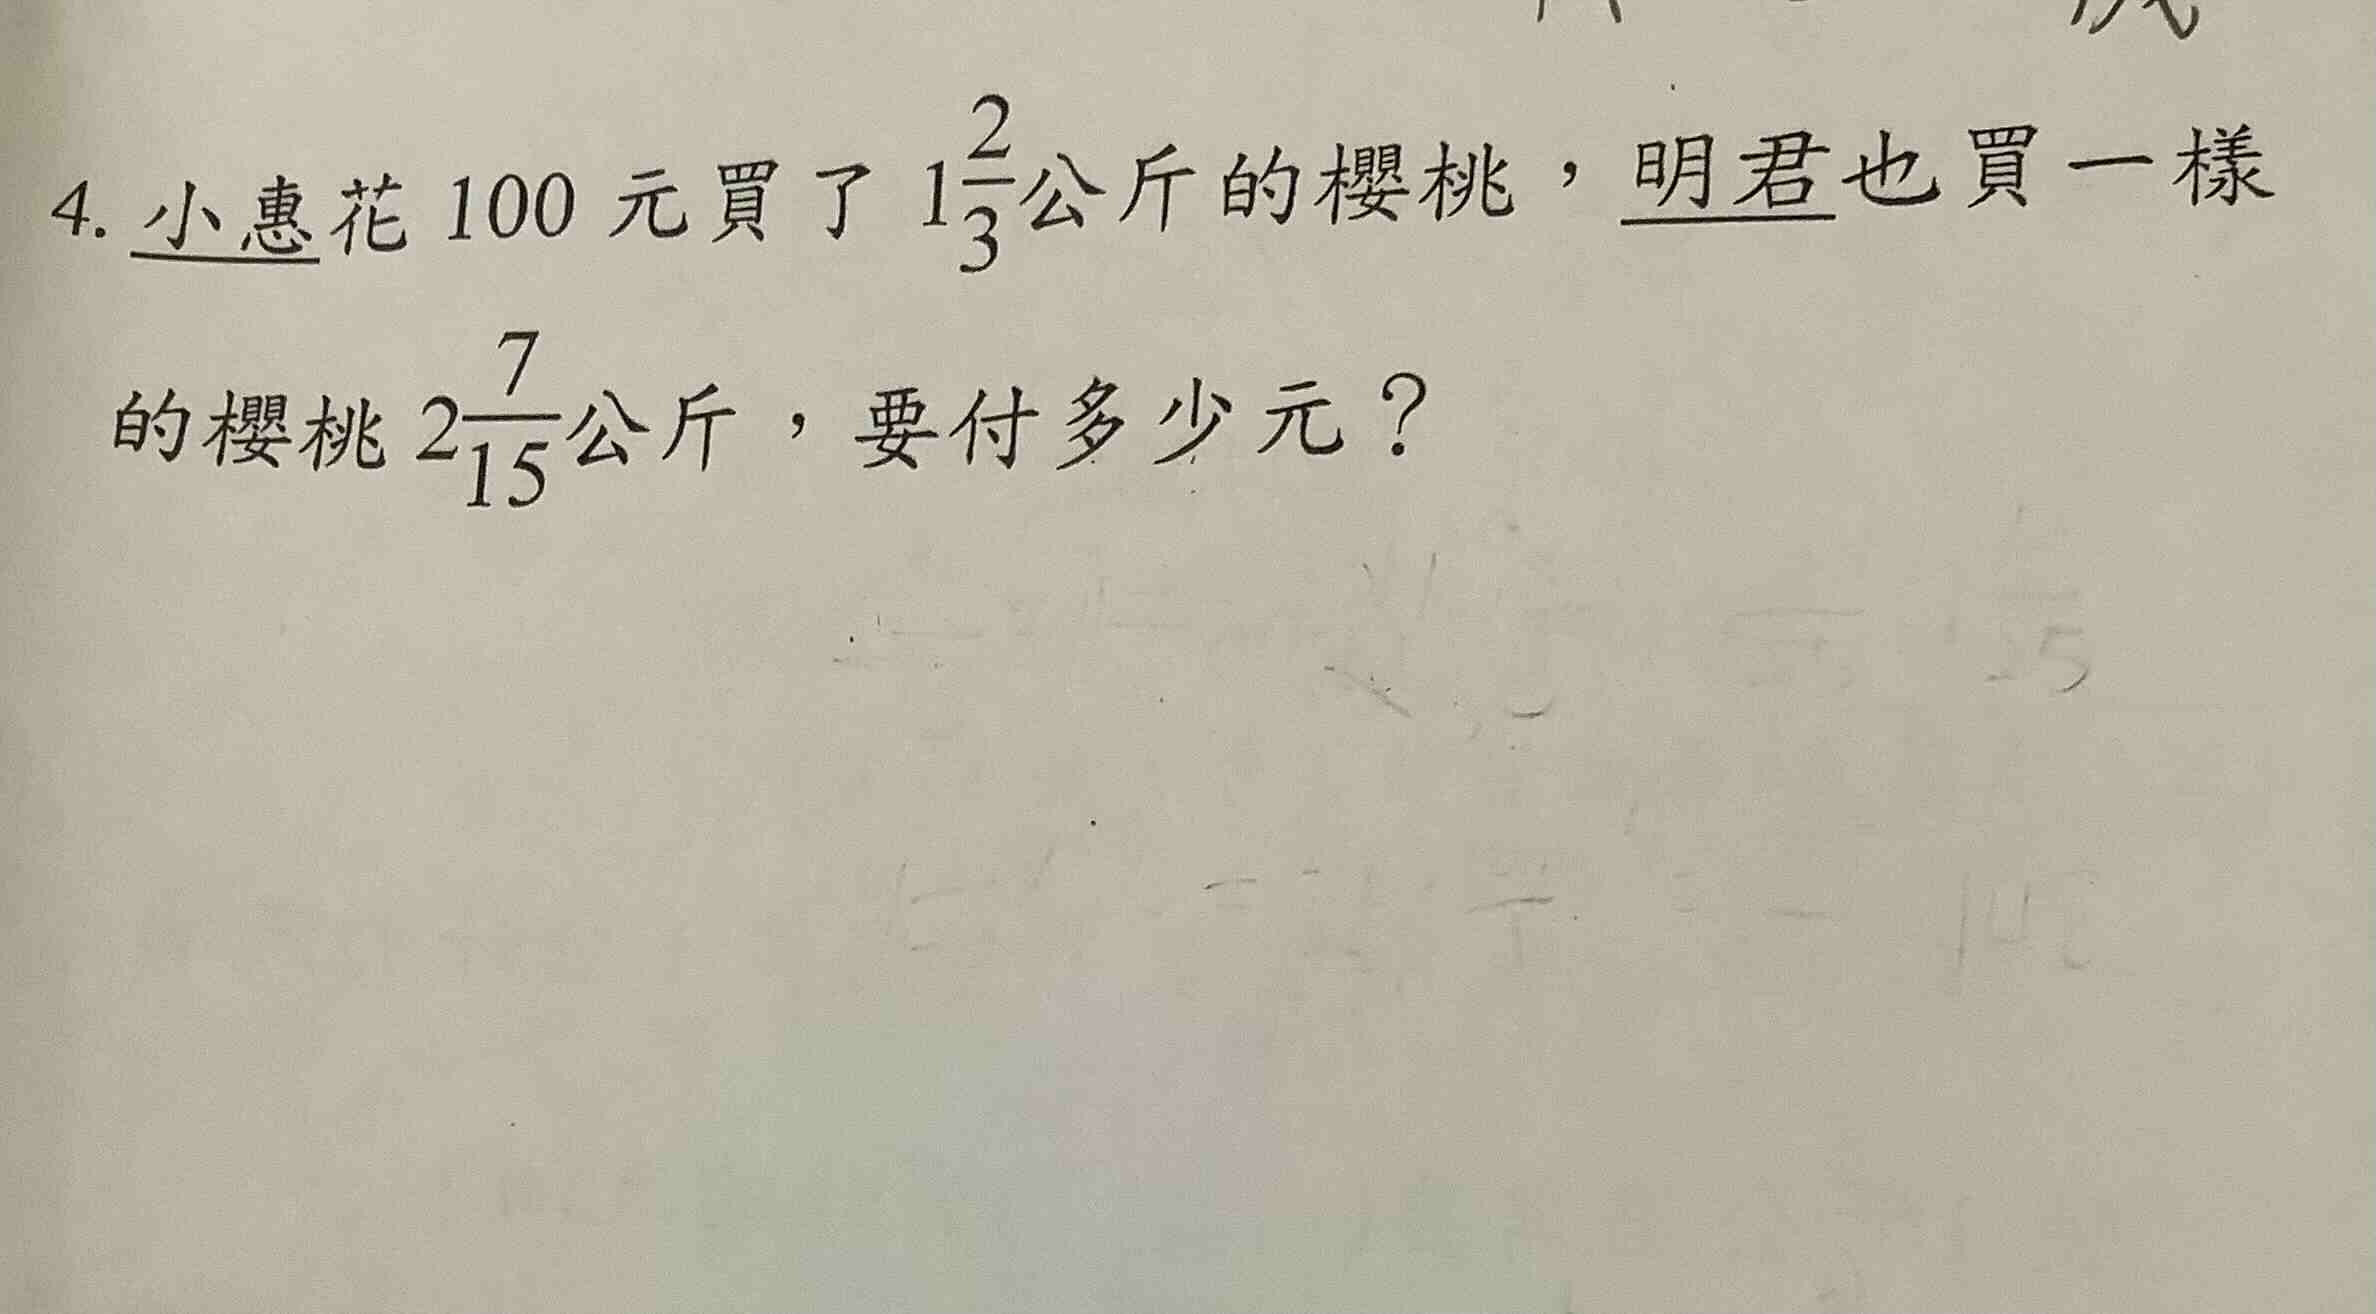 4. 小惠花 100 元買了 1 2/3 公斤的櫻桃，明君也買一樣
的櫻桃 2 7/15 公斤，要付多少元？